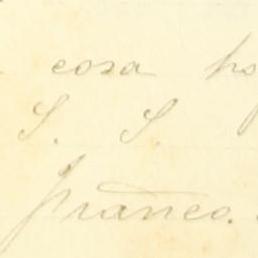 cosa
S. S.
franco.